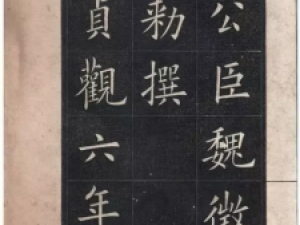 公臣魏徵
勅撰
貞觀六年